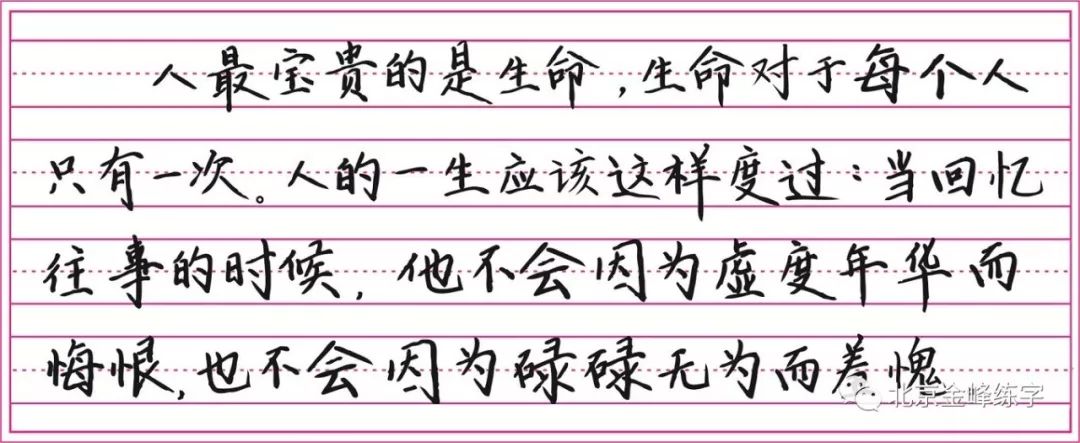 人最宝贵的是生命，生命对于每个人
只有一次。人的一生应该这样度过：当回忆
往事的时候，他不会因为虚度年华而
悔恨，也不会因为碌碌无为而羞愧
北京金峰练字